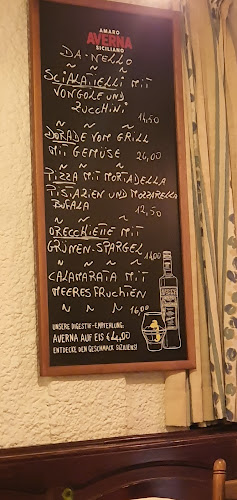 AMARO
AVERNA
SICILIANO
DA-NELLO
~ ~ ~
SCIALATIELLI MIT
VONGOLE UND
ZUCCHINI
14,50
~ ~ ~
DORADE VOM GRILL
MIT GEMÜSE 24,00
~ ~ ~
PIZZA MIT MORTADELLA
PISTAZIEN UND MOZZARELLA
BUFALA 12,50
~ ~ ~
ORECCHIETTE MIT
GRÜNEN-SPARGEL
14,00
~ ~ ~ ~
CALAMARATA MIT
MEERESFRÜCHTEN
~ ~ ~ 16,00
UNSERE DIGESTIF-EMPFEHLUNG:
AVERNA AUF EIS €4,00
ENTDECKE DEN GESCHMACK SIZILIENS!